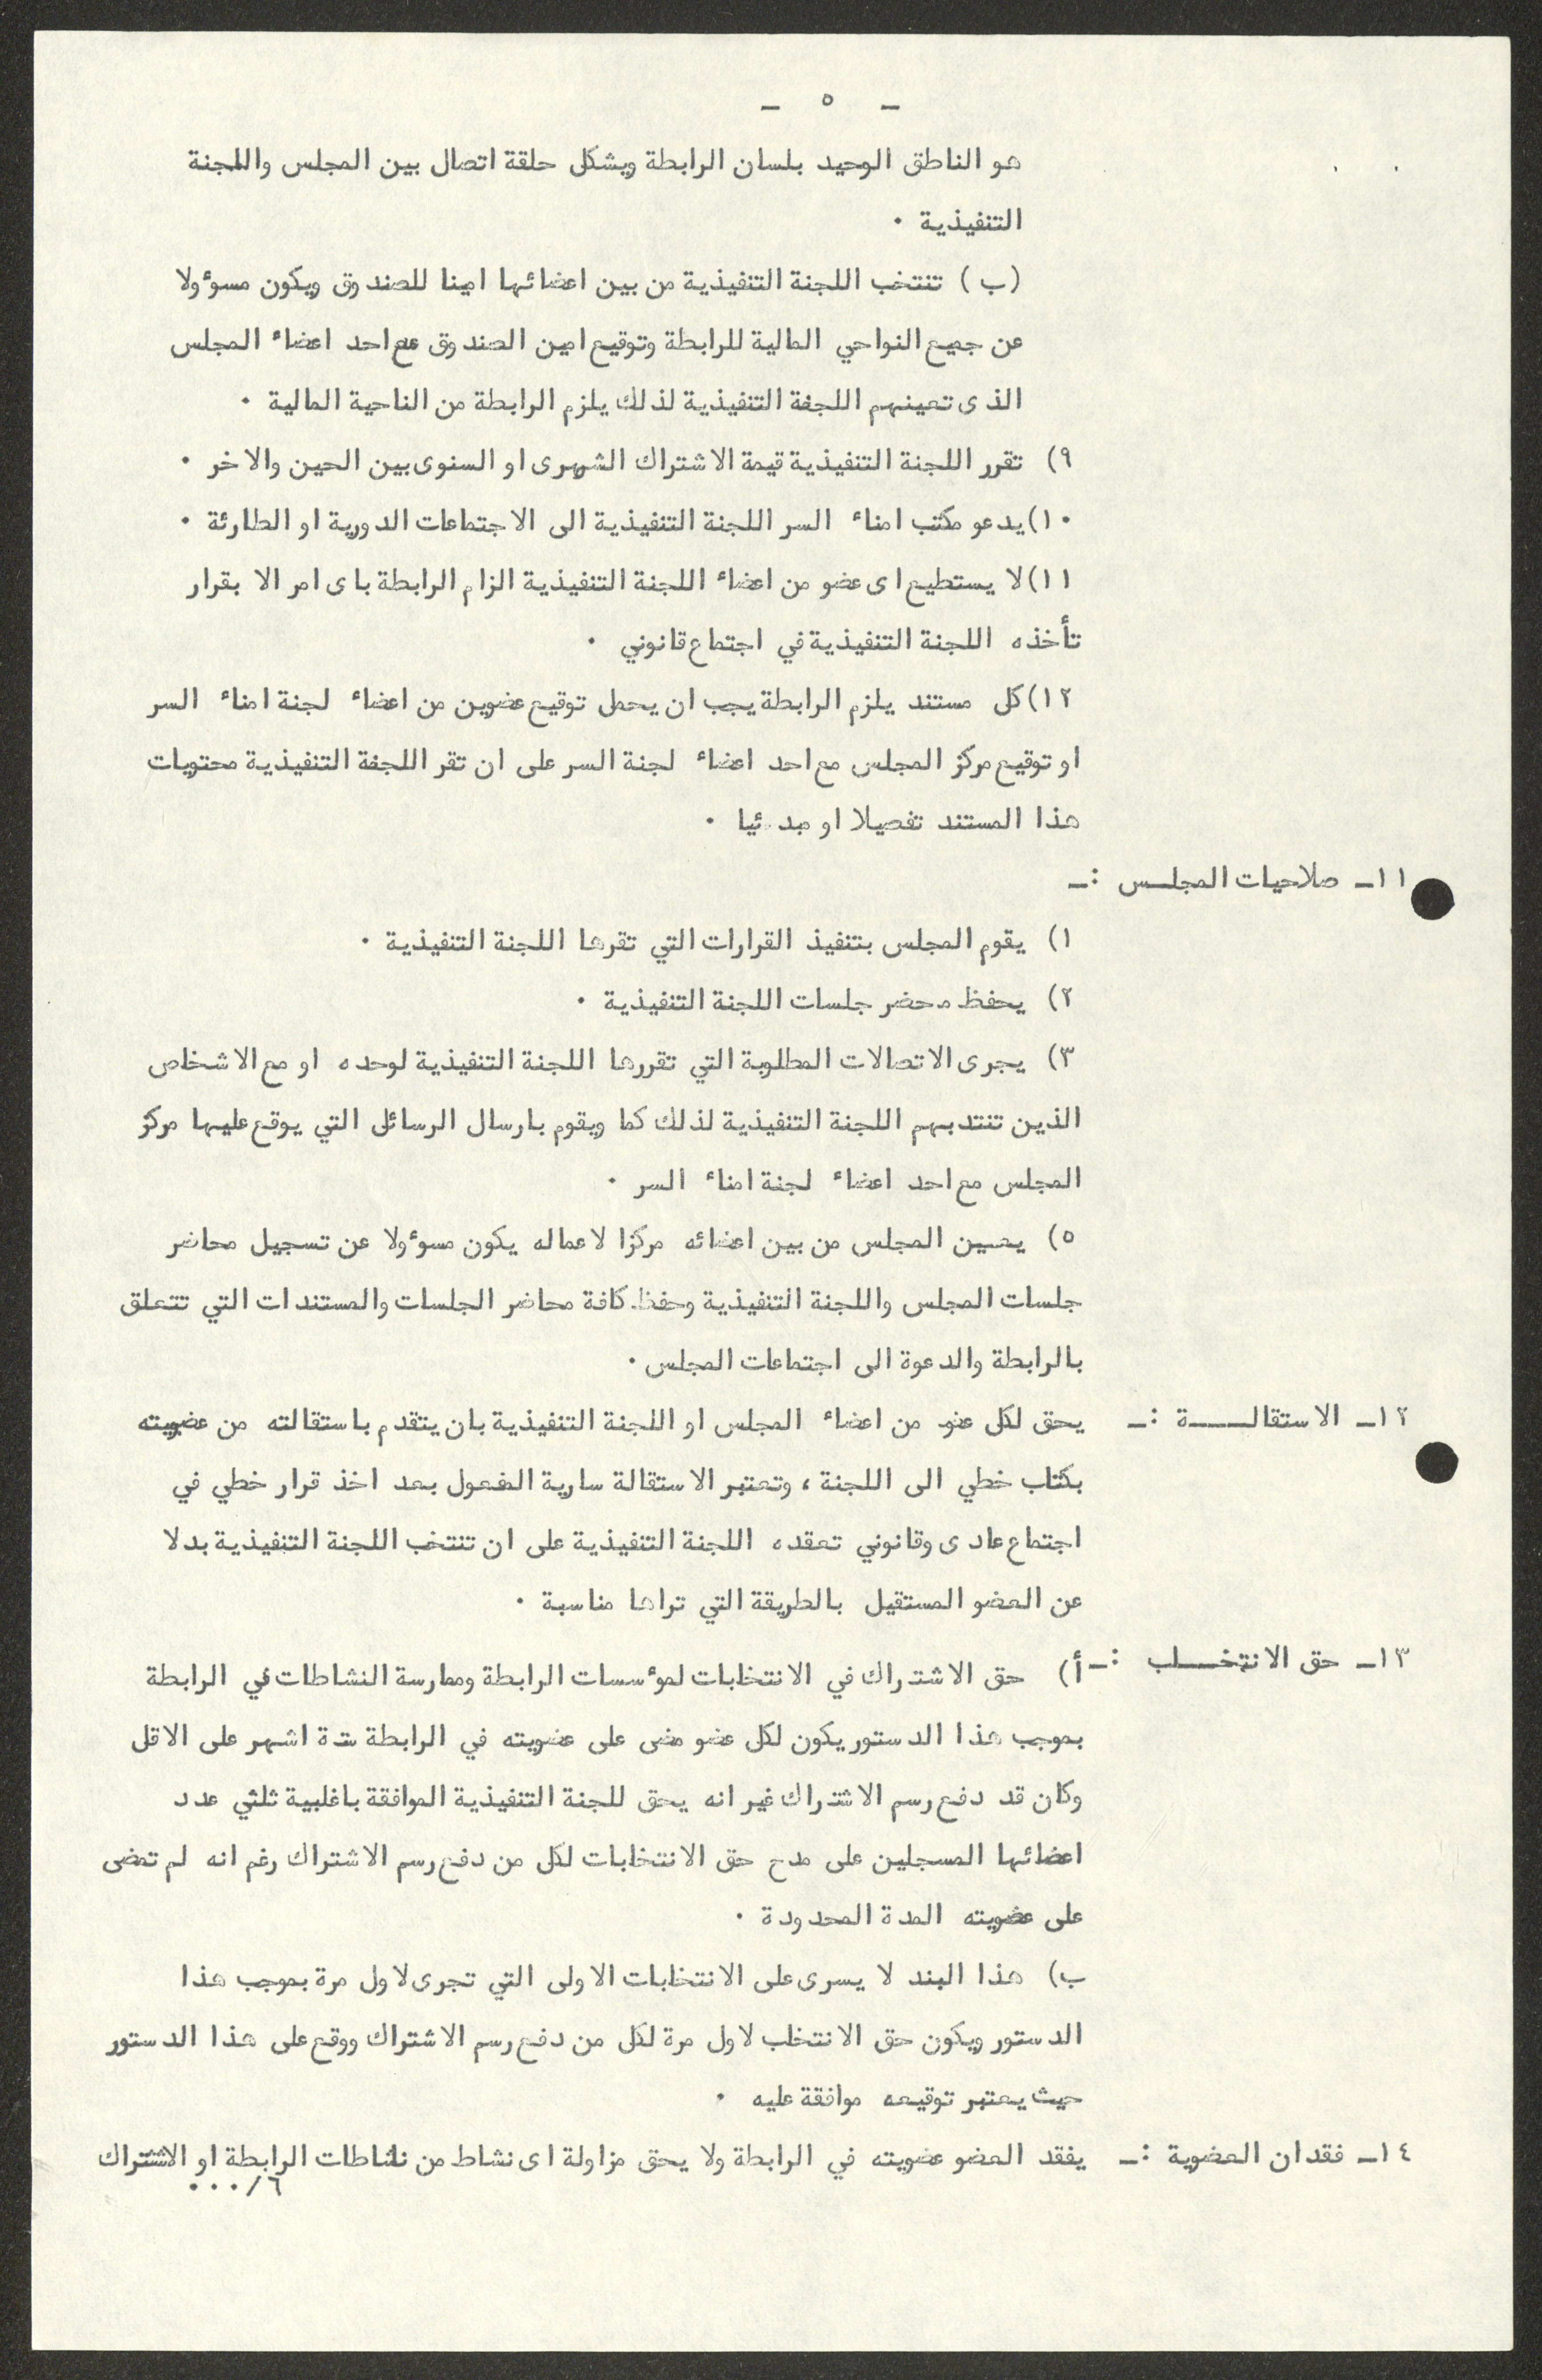 - ٥ -
هو الناطق الوحيد بلسان الرابطة ويشكل حلقة اتصال بين المجلس واللجنة
التنفيذية .
(ب) تنتخب اللجنة التنفيذية من بين اعضائها امينا للصندوق ويكون مسوءولا
عن جميع النواحي المالية للرابطة وتوقيع امين الصندوق مع احد اعضاء المجلس
الذى تعينهم اللجنة التنفيذية لذلك يلزم الرابطة من الناحية المالية .
٩) تقرر اللجنة التنفيذية قيمة الاشتراك الشهرى او السنوى بين الحين والاخر .
١٠) يدعو مكتب امناء السر اللجنة التنفيذية الى الاجتماعات الدورية او الطارئة .
١١) لا يستطيع اى عضو من اعضاء اللجنة التنفيذية الزام الرابطة باى امر الا بقرار
تأخذه اللجنة التنفيذية في اجتماع قانوني .
١٢) كل مستند يلزم الرابطة يجب ان يحمل توقيع عضوين من اعضاء لجنة امناء السر
او توقيع مركز المجلس مع احد اعضاء لجنة السر على ان تقر اللجنة التنفيذية محتويات
هذا المستند تفصيلا او مبدئيا .
١١- صلاحيات المجلس :-
١) يقوم المجلس بتنفيذ القرارات التي تقرها اللجنة التنفيذية .
٢) يحفظ محضر جلسات اللجنة التنفيذية .
٣) يجرى الاتصالات المطلوبة التي تقررها اللجنة التنفيذية لوحده او مع الاشخاص
الذين تنتدبهم اللجنة التنفيذية لذلك كما ويقوم بارسال الرسائل التي يوقع عليها مركز
المجلس مع احد اعضاء لجنة امناء السر .
٥) يعين المجلس من بين اعضائه مركزا لاعماله يكون مسوءولا عن تسجيل محاضر
جلسات المجلس واللجنة التنفيذية وحفظ كافة محاضر الجلسات والمستندات التي تتعلق
بالرابطة والدعوة الى اجتماعات المجلس .
١٢- الاستقالــــة :- يحق لكل عضو من اعضاء المجلس او اللجنة التنفيذية بان يتقدم باستقالته من عضويته
بكتاب خطي الى اللجنة ، وتعتبر الاستقالة سارية المفعول بعد اخذ قرار خطي في
اجتماع عادى وقانوني تعقده اللجنة التنفيذية على ان تنتخب اللجنة التنفيذية بدلا
عن العضو المستقيل بالطريقة التي تراها مناسبة .
١٣- حق الانتخــاب :- أ) حق الاشتراك في الانتخابات لموءسسات الرابطة وممارسة النشاطات في الرابطة
بموجب هذا الدستور يكون لكل عضو مضى على عضويته في الرابطة ستة اشهر على الاقل
وكان قد دفع رسم الاشتراك غير انه يحق للجنة التنفيذية الموافقة باغلبية ثلثي عدد
اعضائها المسجلين على مدح حق الانتخابات لكل من دفع رسم الاشتراك رغم انه لم تمضى
على عضويته المدة المحدودة .
ب) هذا البند لا يسرى على الانتخابات الاولى التي تجرى لاول مرة بموجب هذا
الدستور ويكون حق الانتخاب لاول مرة لكل من دفع رسم الاشتراك ووقع على هذا الدستور
حيث يعتبر توقيعه موافقة عليه .
١٤- فقدان العضوية :- يفقد العضو عضويته في الرابطة ولا يحق مزاولة اى نشاط من نشاطات الرابطة او الاشتراك
٦/...